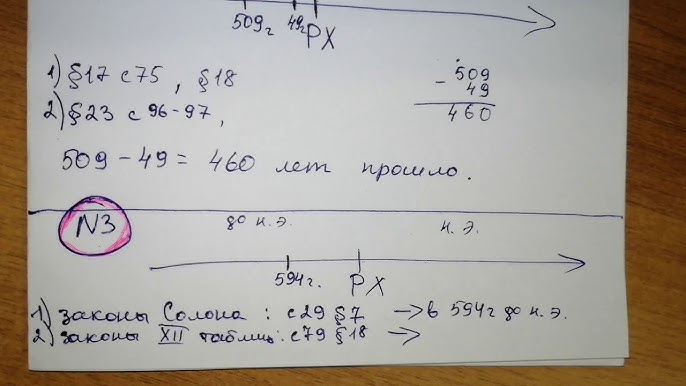 509г 49г РХ
1) §17 с75, §18
2) §23 с 96-97,
509
- 49
460
509 - 49 = 460 лет прошло.
N3 до н.э. н.э.
594г. РХ
1) законы Солона: с29 §7 → в 594г до н.э.
2) законы XII таблиц: с79 §18 →